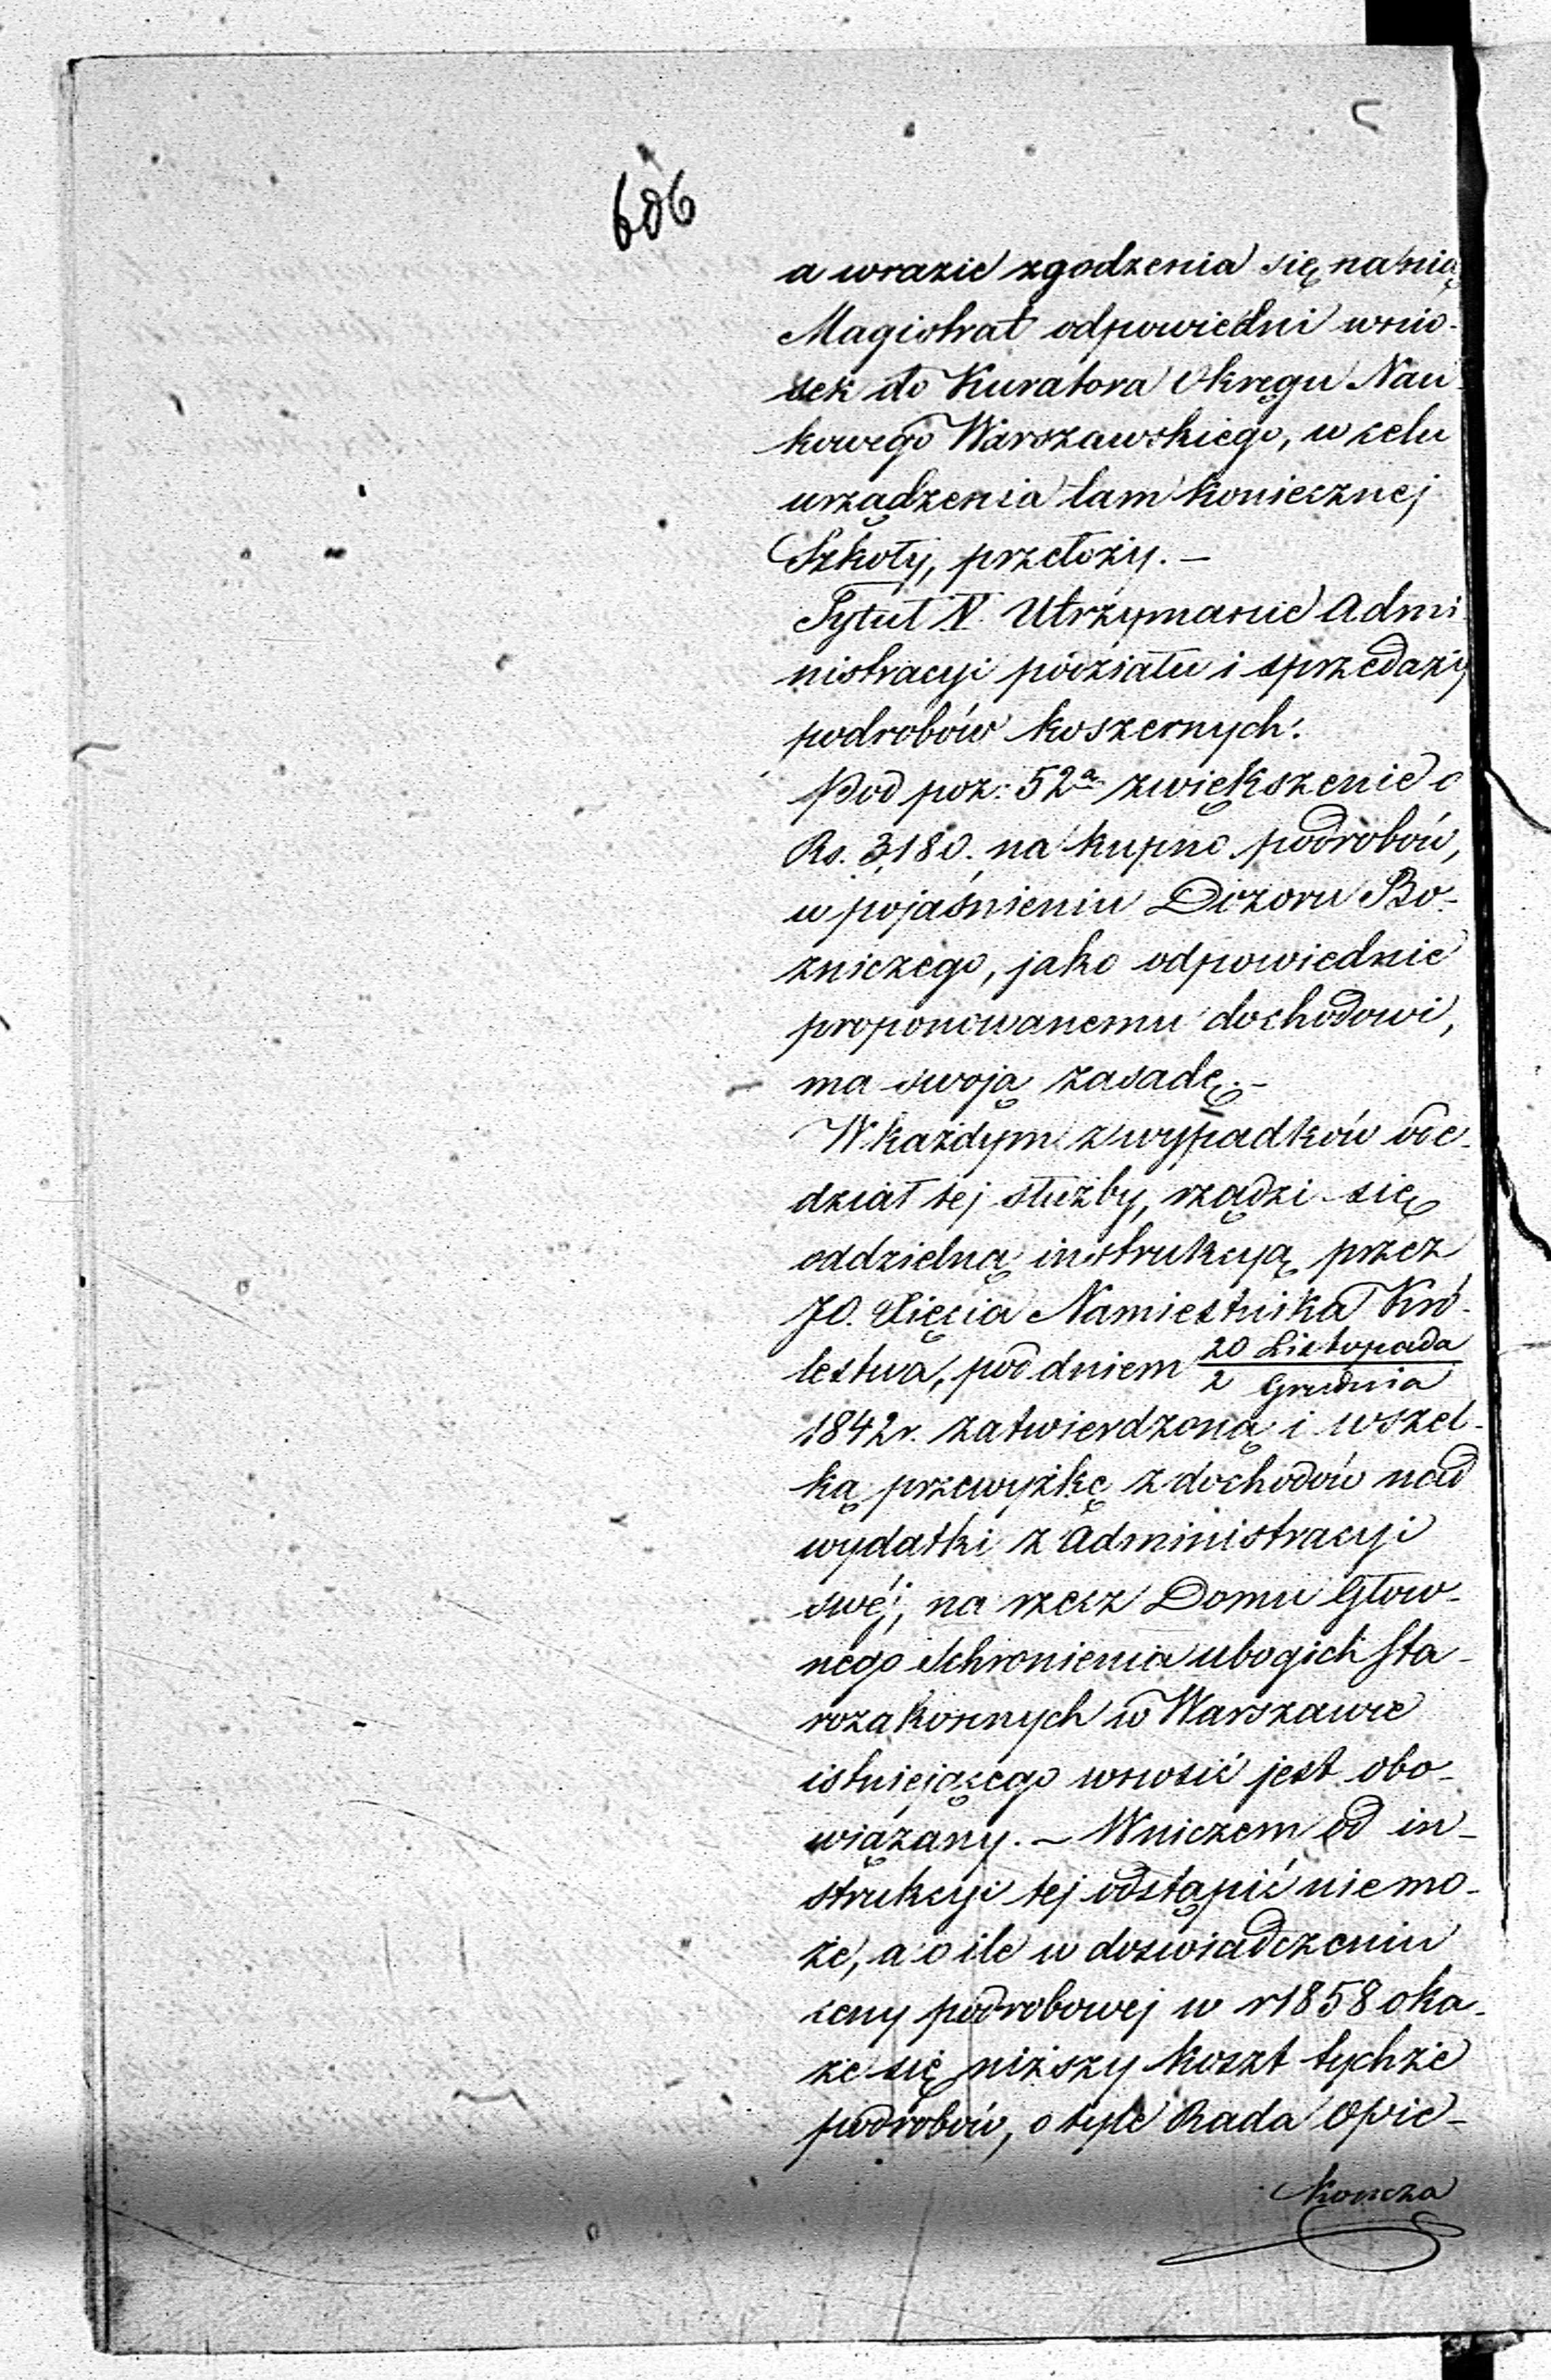 606
a wrazie zgodzenia się na nią
Magistrat odpowiedni wnio-
sek do Kuratora Okręgu Nau-
kowego Warszawskiego, w celu
urządzenia tam koniecznej
Szkoły, przełoży. —
Tytuł V. Utrzymanie Admi-
nistracyi poiziału i sprzedaży
podrobów koszernych.
Pod poz: 52ª zwiększenie o
Rs. 3,180. na kupno podrobów,
w pojaśnieniu Dozoru Bo-
zniczego, jako odpowiednie
proponowanemu dochodowi,
ma swoją zasadę. —
W każdym z wypadków od-
dział tej służby, rządzi się
oddzielną instrukcyą przez
JO. Xięcia Namiestnika Kró-
lestwa, pod dniem 20 Listopada
2 Grudnia
1842 r. zatwierdzoną i wszel-
ką przewyżkę z dochodów nad
wydatki z Administracyi
swéj, na rzecz Domu Głow-
nego Schronienia ubogich Sta-
rozakonnych w Warszawie
istniejącego wnosić jest obo-
wiązany. — W niczem od in-
strukcyi tej odstąpić niemo-
że, a o ile w doswiadczeniu
ceny podrobowej w r 1858 oka-
że się niższy koszt tychże
podrobów, o tyle Rada Opie-